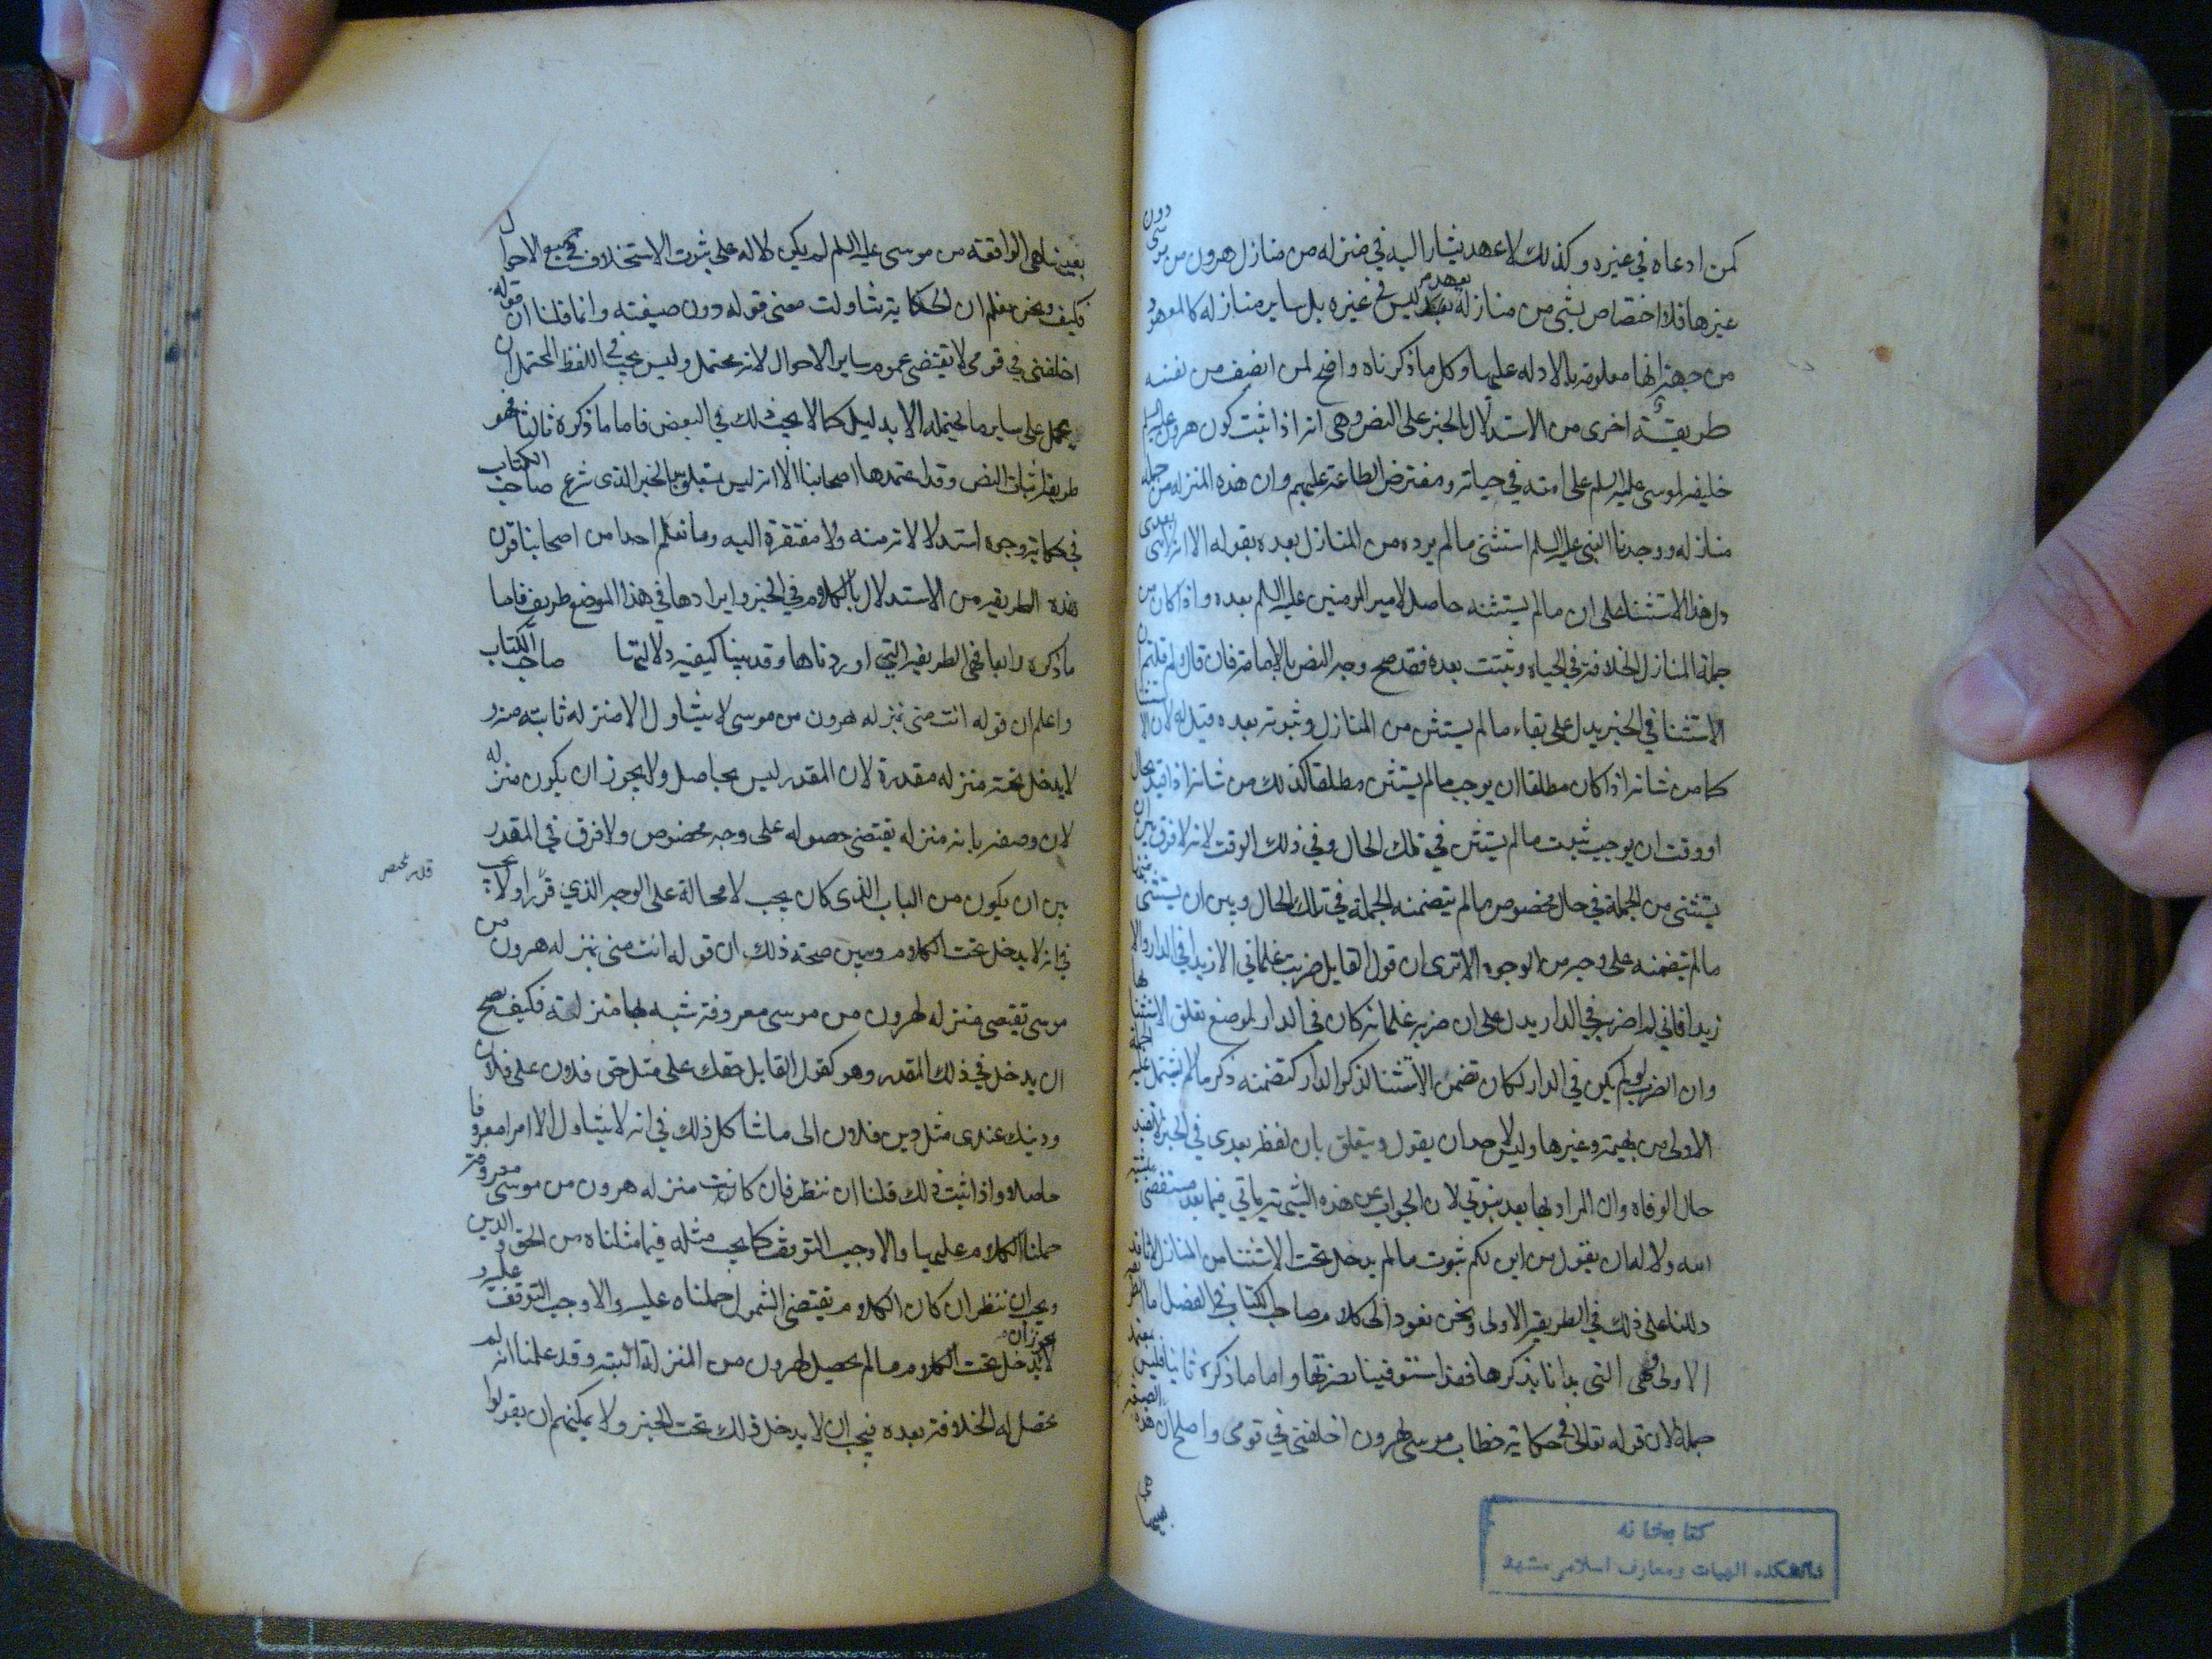 كمن ادعاه في غيره وكذلك لا عهد يشار اليه في منزله من منازل هرون من موسى دون
غيرها فلا اختصاص بشى من منازله بعهد ليس في غيره بل ساير منازله كالمعهود
من جهة انها معلومة بالادله عليها وكل ما ذكرناه واضح لمن انصف من نفسه
طريقة اخرى من الاستدلال بالخبر على النص وهى انه اذا ثبت كون هرون عليه السلم
خليفه لموسى عليه السلم على امته في حياته ومفترض الطاعة عليهم وان هذه المنزله من جمله
منازله ووجدنا النبى عليه السلم استثنى ما لم يرده من المنازل بعده بقوله الا انه لا نبى بعدى
دل هذا الاستثنا على ان ما لم يستثنه حاصل لامير المومنين عليه السلم بعده واذا كان من
جملة المنازل الخلافة في الحياه وثبتت بعده فقد صح وجه النص بالامامة فان قال ولم قلتم ان
الاستثنا في الخبر يدل على بقاء ما لم يستثن من المنازل وثبوته بعده قيل له لان الاستثنا
كما من شانه اذا كان مطلقا ان يوجب ما لم يستثن مطلقا كذلك من شانه اذا قيد بحال
او وقت ان يوجب ثبوت ما لم يستثن في تلك الحال وفي ذلك الوقت لانه لا فرق بين ان
يستثنى من الجملة في حال مخصوص ما لم تتضمنه الجملة في تلك الحال وبين ان يستثنى منها
ما لم تتضمنه على وجه من الوجوه الا ترى ان قول القايل ضربت غلمانى الا زيدا في الدار والا
زيدا فاني لم اضربه في الدار يدل على ان ضربه غلمانه كان في الدار لموضع تعلق الاستثنا بها
وان الضرب لو لم يكن في الدار لكان تضمن الاستثنا لذكر الدار كتضمنه ذكر ما لم تشتمل عليه الجملة
الاولى من بهيمة وغيرها وليس لاحد ان يقول ويتعلق بان لفظه بعدى في الخبر لا تفيد
حال الوفاه وان المراد بها بعد نبوتي لان الجواب عن هذه الشبهة ياتي فيما بعد مستقصى بمشية
الله ولا له ان يقول من اين لكم ثبوت ما لم يدخل تحت الاستثنا من المنازل لانا قد
دللنا على ذلك في الطريقه الاولى ونحن نعود الى كلام صاحب الكتاب في الفصل اما الطريقه
الاولى وهى التى بدا نا بذكرها فقد استوفينا نصرتها واما ما ذكره ثانيا فليس بعتمد
جملة لان قوله تعالى في حكاية خطاب موسى لهرون اخلفني في قومى واصلح ان هذه الصيغه
بعينها هى الواقعة من موسى عليه السلم لم يكن دلالة على ثبوت الاستخلاف في جميع الاحوال
فكيف ونحن نعلم ان الحكاية تناولت معنى قوله دون صيغته وانما قلنا ان قوله
اخلفنى في قومى لا تقتضى عموم ساير الاحوال لانه محتمل وليس يجب في اللفظ المحتمل ان
يحمل على ساير ما يحتمله الا بدليل كما لا يجب ذلك في البعض فاما ما ذكره ثالثا فهو
طريقة اثبات النص وقد اعتمدها اصحابنا الا انه ليس يتعلق بالخبر الذى شرع صاحب الكتاب
في حكاية وجوه استدلالاته منه ولا مفتقرة اليه وما نعلم احدا من اصحابنا قرن
هذه الطريقه من الاستدلال بالكلام في الخبر وايرادها في هذا الموضع طريف فاما
ما ذكره رابعا فهى الطريقة التي اوردناها وقد بينا كيفيه دلالتها صاحب الكتاب
واعلم ان قوله انت منى بمنزله هرون من موسى لا يتناول الا منزله ثابته منه و
لا يدخل تحته منزله مقدرة لان المقدر ليس بحاصل ولا يجوز ان يكون منزله
لان وصفه بانه منزله يقتضى حصوله على وجه مخصوص ولا فرق في المقدر
بين ان يكون من الباب الذى كان يجب لا محالة على الوجه الذي قدر او لا يجب
قدر مختصر
في انه لا يدخل تحت الكلام ويبين صحة ذلك ان قوله انت منى بمنزله هرون من
موسى تقتضى منزله لهرون من موسى معروفة شبه بها منزلته فكيف يصح
ان يدخل في ذلك المقدر وهو كقول القايل حقك على مثل حق فلان على فلان
ودينك عندى مثل دين فلان الى ما شاكل ذلك في انه لا يتناول الا امرا معروفا
حاصلا واذا ثبت ذلك قلنا ان ننظر فان كانت منزله هرون من موسى معروفة
حملنا الكلام عليها والا وجب التوقف كما يجب مثله فيما مثلناه من الحق والدين
ويجب ان ننظر ان كان الكلام يقتضى الشمول حملناه عليه والا وجب التوقف عليه و
لا يجوز ان يدخل تحت الكلام ما لم يحصل لهرون من المنزلة البته وقد علمنا انه لم
تحصل له الخلافة بعده فيجب ان لا يدخل ذلك تحت الخبر ولا يمكنهم ان يقولوا
كتابخانه
دانشكده الهيات ومعارف اسلامى مشهد